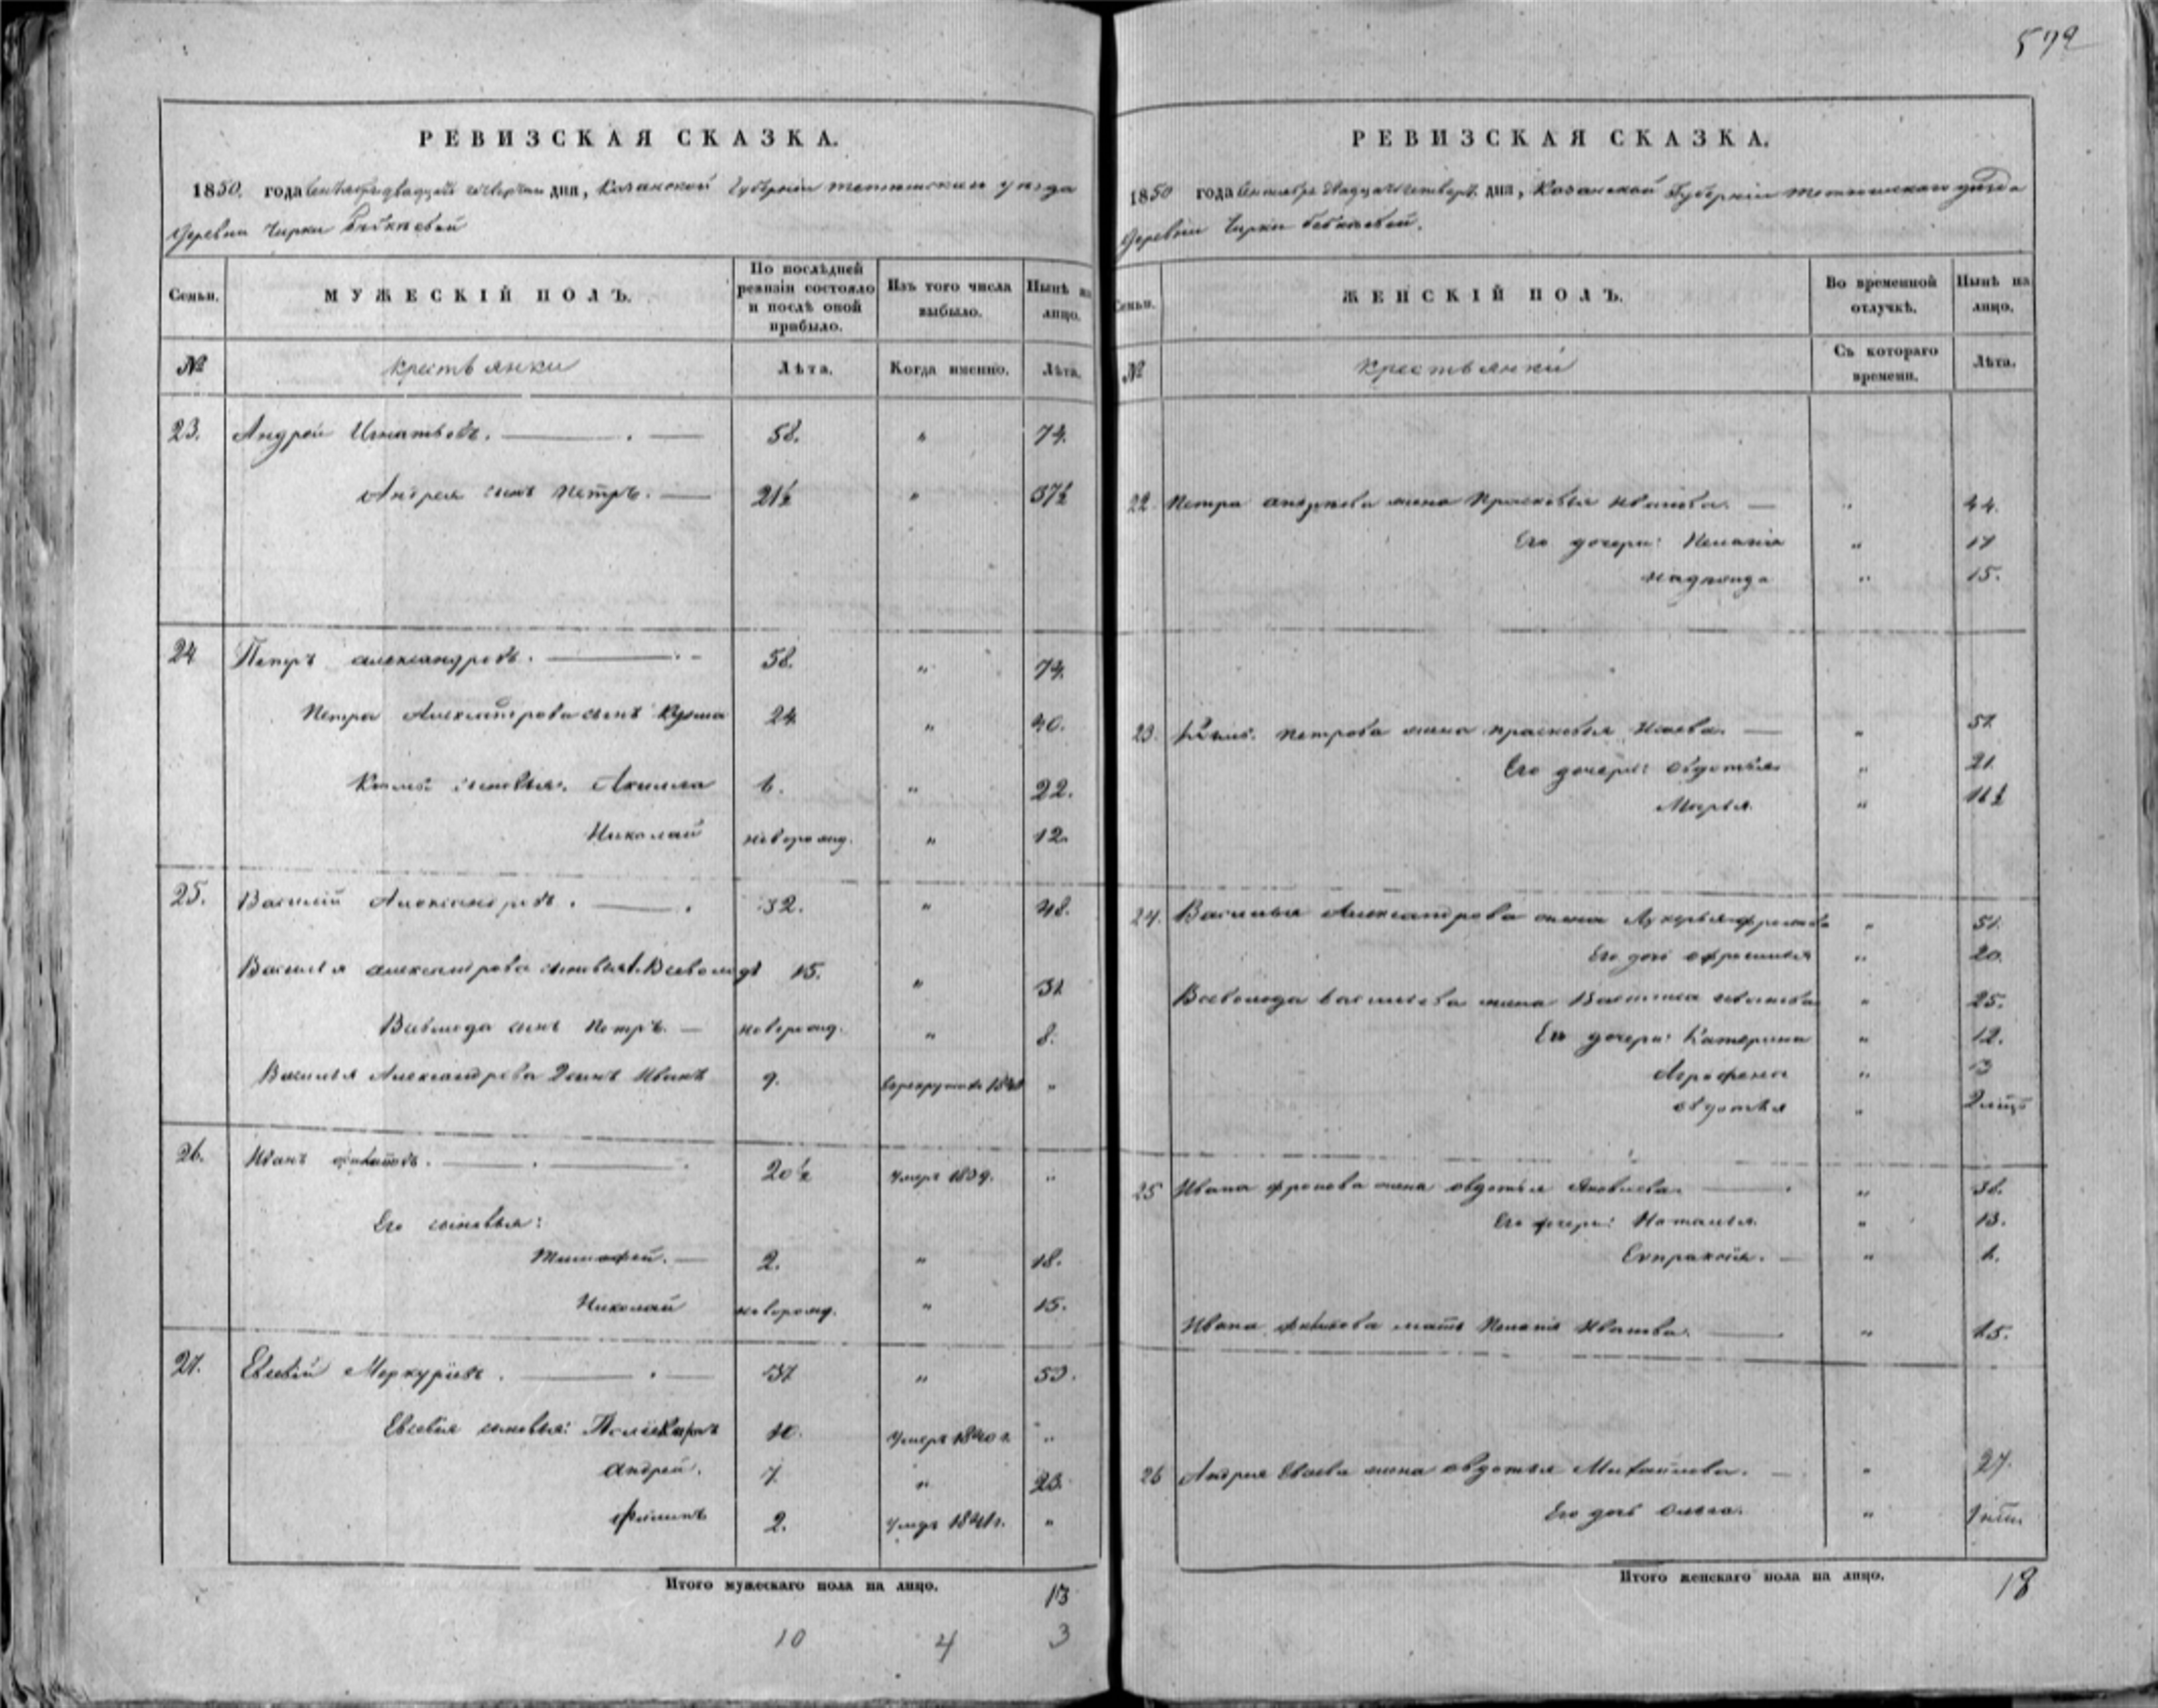 579
РЕВИЗСКАЯ СКАЗКА.
1850. года Сентября двадцать четвертаго дня, Казанской Губернии тетюшскаго уезда
Деревни Чирки Бебкеевой
Семьи. МУЖЕСКІЙ ПОЛЪ. По послѣдней ревизіи состояло и послѣ оной прибыло. Изъ того числа выбыло. Нынѣ на лицо.
№ крестьянки Лѣта. Когда именно. Лѣта.
23. Андрей Игнатьевъ. 58. " 74.
Андрея сынъ Петръ. 21½ " 37½
24 Петръ александровъ. 58. " 74.
Петра Александрова сынъ Кузма 24 " 40.
сыновья. Акимъ 6. " 22.
Николай новорожд. " 12.
25. Василий Александровъ. 32. " 48.
Василья александрова сыновья 1. Всеволодъ 15. " 31
Всеволода сынъ Петръ. новорожд. " 8.
Василья Александрова 2 сынъ Иванъ 9. "
26. Иванъ 20½ умеръ 1839. "
Его сыновья:
Тимофей. 2. " 18.
Николай новорожд. " 15.
27. Евсевій Меркурьевъ. 37 " 53.
Евсевія сыновья: Поликарпъ 10. умеръ 1840 г. "
андрей. 7. " 23.
Филипъ 2. умеръ 1841 г. "
Итого мужескаго пола на лицо. 13
10 4 3
РЕВИЗСКАЯ СКАЗКА.
1850 года Сентября двадцать четверт. дня, Казанской Губерніи тетюшскаго уезда
Деревни Чирки бебкеевой.
Семьи. ЖЕНСКІЙ ПОЛЪ. Во временной отлучкѣ. Нынѣ на лицо.
№ крестьянки Съ котораго времени. Лѣта.
22. Петра андреева жена Прасковья иванова. " 44.
Его дочери: Пелагія " 17
" 15.
23. петрова жена прасковья Исаева. " 57.
Его дочери: овдотья " 21
Марья. " 16½
24. Василья Александрова жена Лукерья " 51.
Его дочь офросинья " 20.
Всеволода васильева жена Василиса иванова " 25.
Его дочери: Катерина " 12.
Аграфена " 3
овдотья "
25 Ивана жена овдотья Яковлева. " 38.
Его дочери: Наталья " 13.
Евпраксия. "
Ивана мать Пелагія Иванова. "
26 Андрея жена овдотья Михайлова. " 27.
Его дочь Ольга. "
Итого женскаго пола на лицо. 18